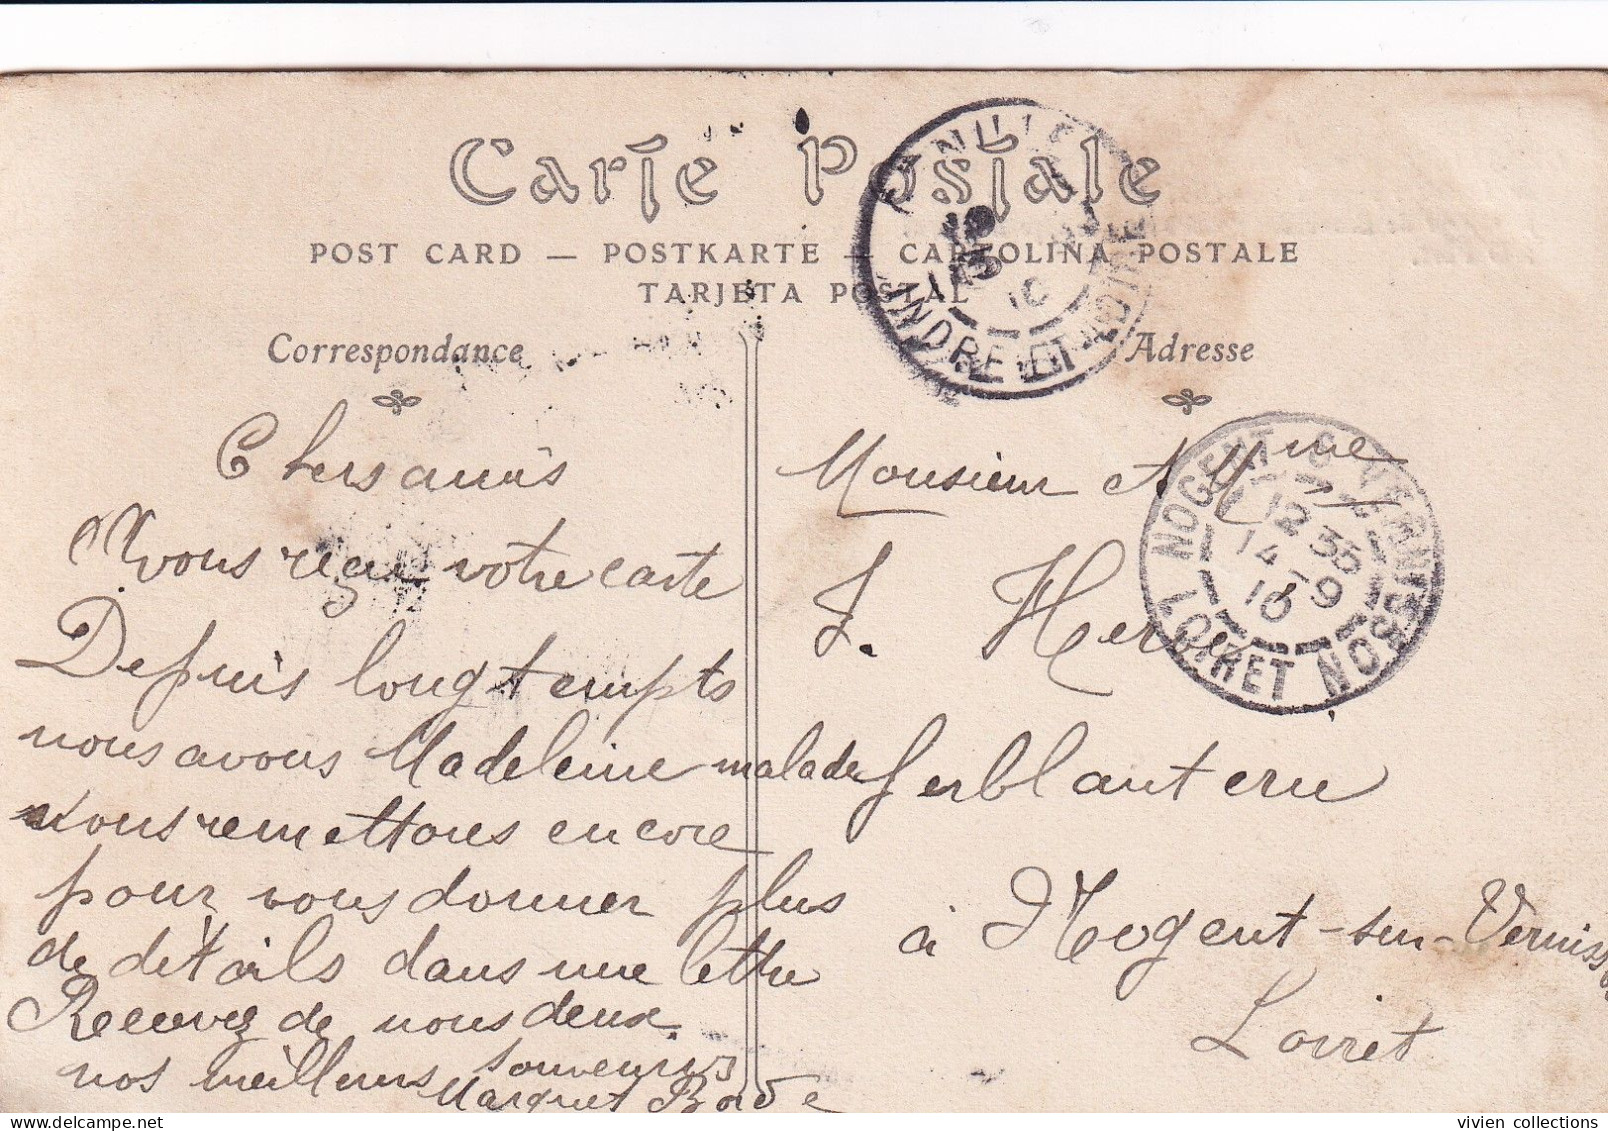 Carte Postale
POST CARD — POSTKARTE — CARTOLINA POSTALE
TARJETA POSTAL
Correspondance
Adresse
INDRE ET LOIRE
10
NOGENT S VERNISSON
12 35
14 - 9
10
LOIRET
Chers amis
Nous reçu votre carte
Depuis longtempts
nous avons Madeleine malade
Nous remettons encore
pour vous donner plus
de détails dans une lettre
Recevez de nous deux
nos meilleurs souvenirs
Monsieur et Mme
F.
ferblanterie
à Nogent-sur-Vernisson
Loiret
vivien collections